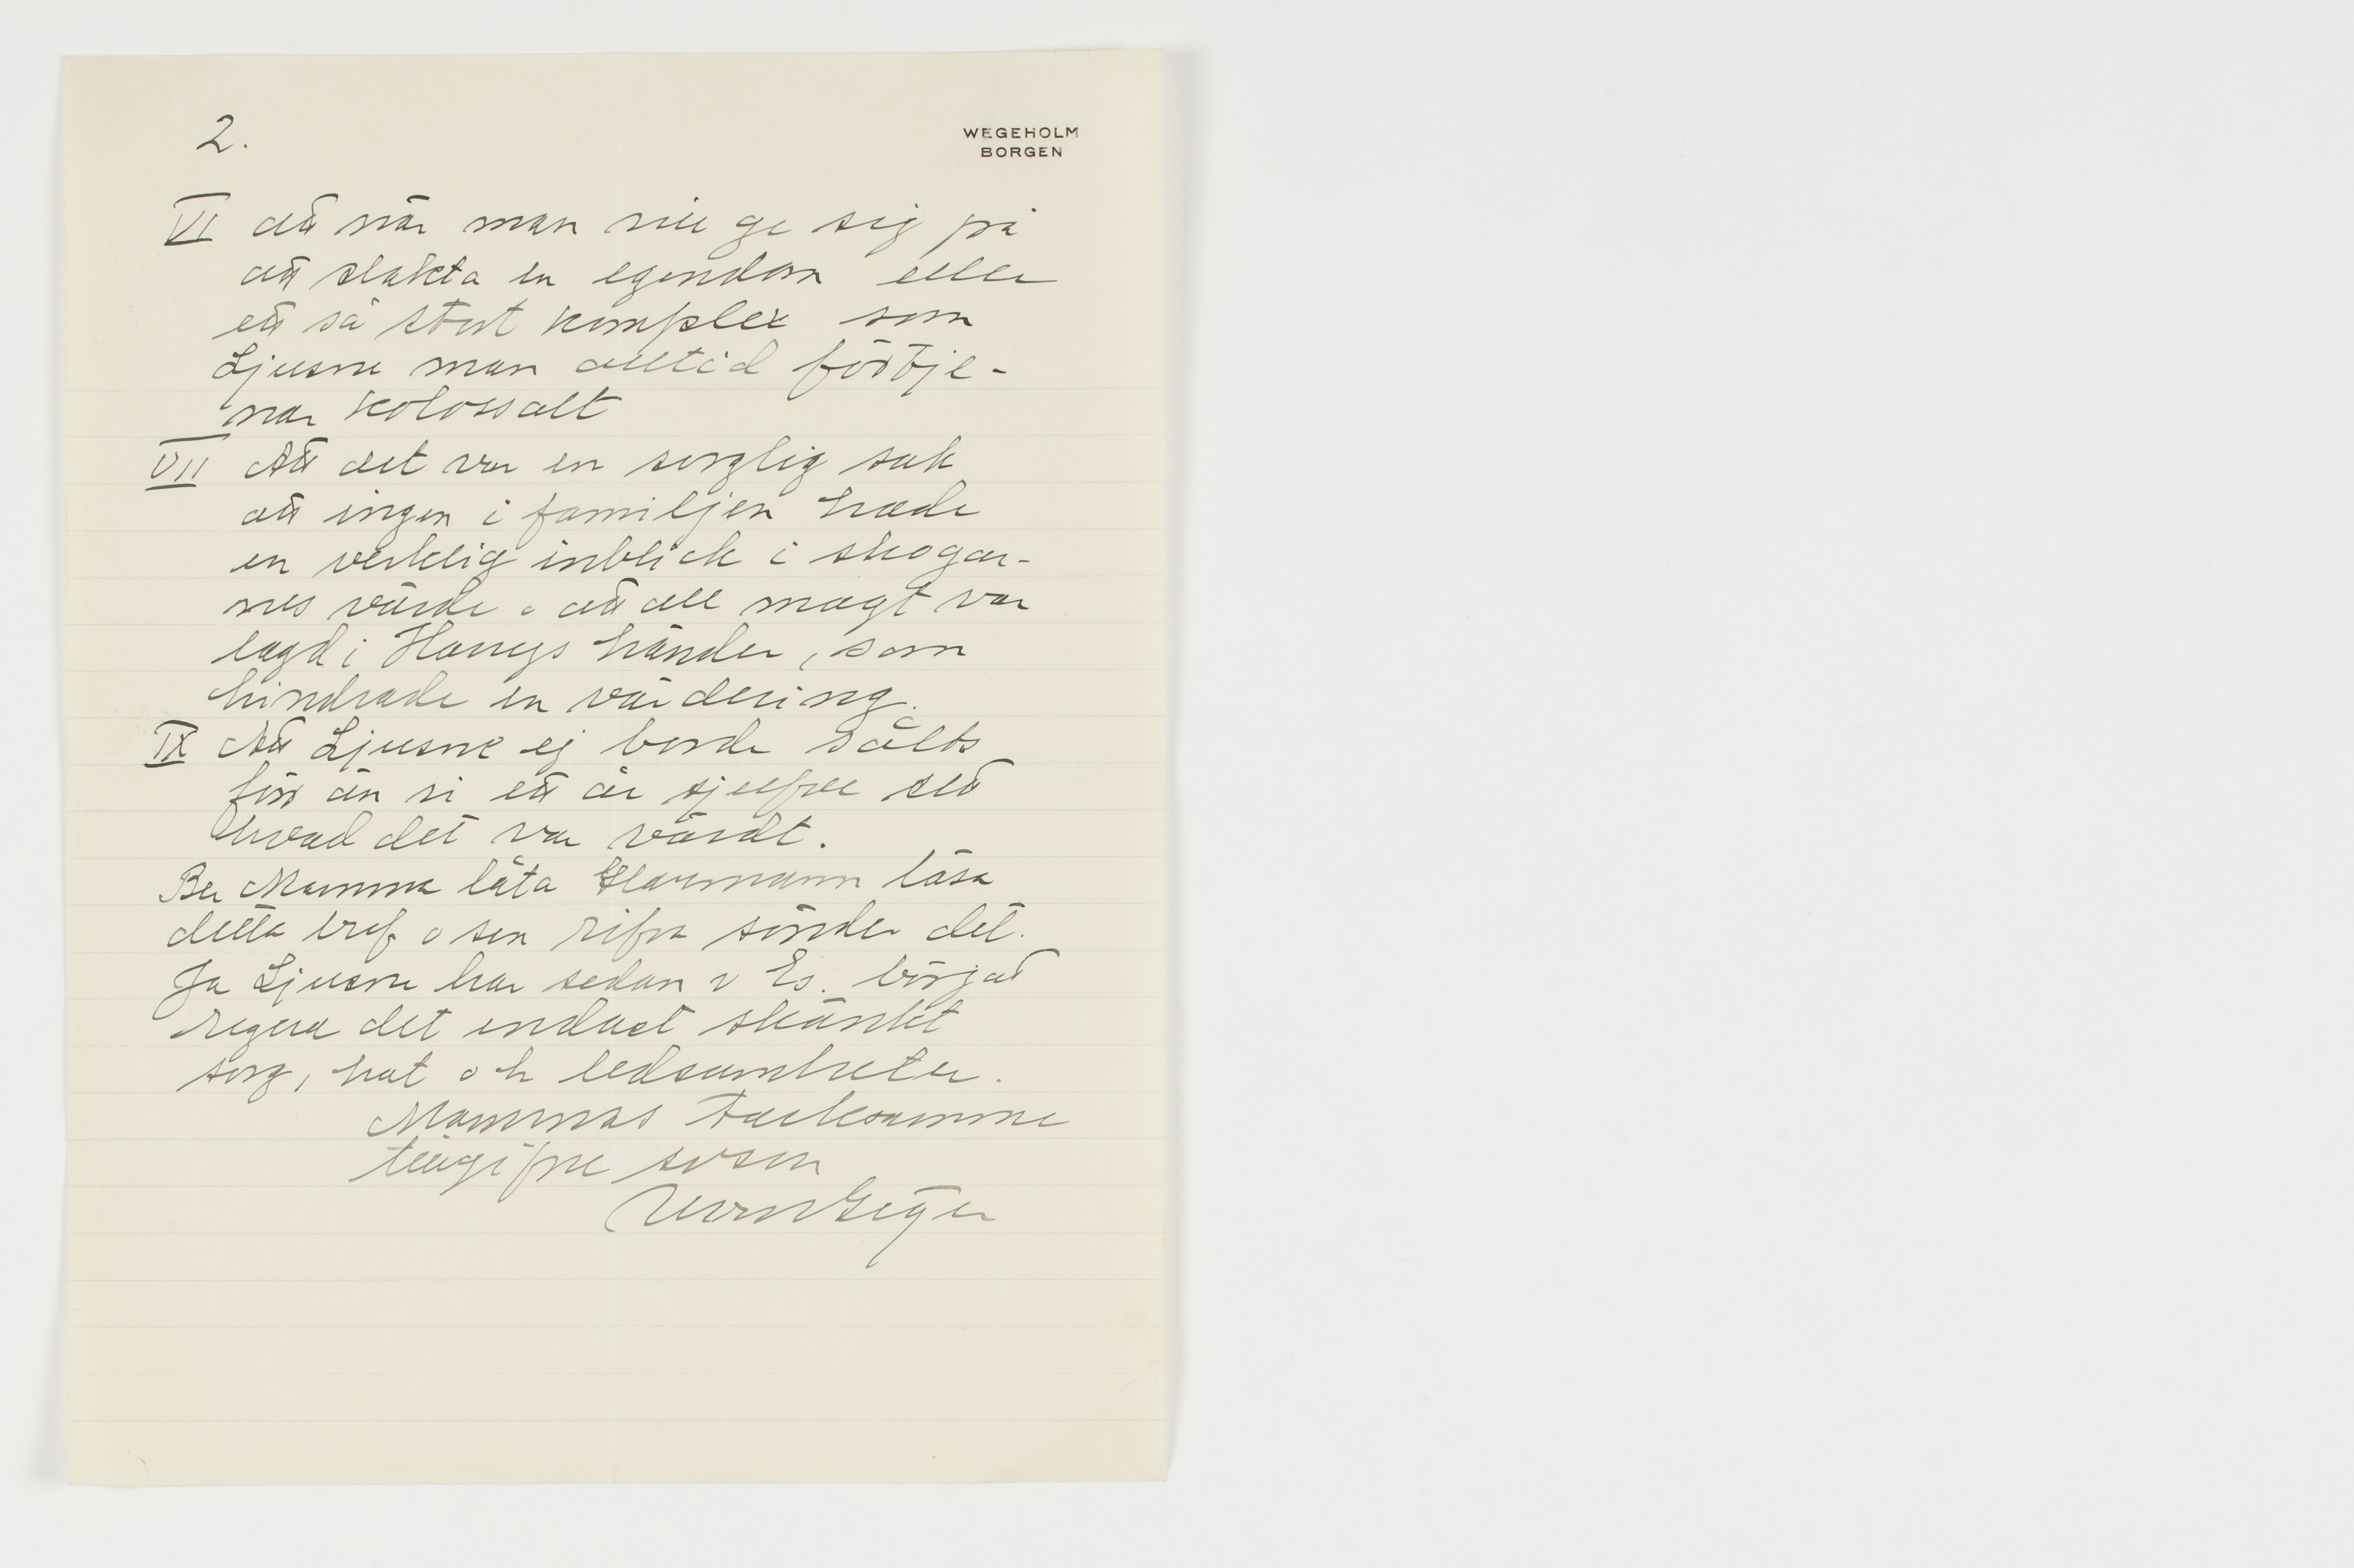 2.
WEGEHOLM
BORGEN
VI att når man vill ge sig på
att slakta en egendom eller
ett så stort komplex som
Ljusne man alltid förtje-
nar kolossalt
VII Att det var en sorglig sak
att ingen i familjen hade
en verklig inblick i skogar-
nes värde o att all magt var
lagd i Harrys händer, som
hindrade en värdering.
IX Att Ljusne ej borde sålts
förr än vi ett år sjelfve sett
hvad det var värdt.
Ber Mamma låta Harmann läsa
detta bref o sen rifva sönder det.
Ja Ljusne har sedan v Es. börjat
regera det endast skänkt
sorg, hat och ledsamheter.
Mammas tacksamme
tillgifne svson